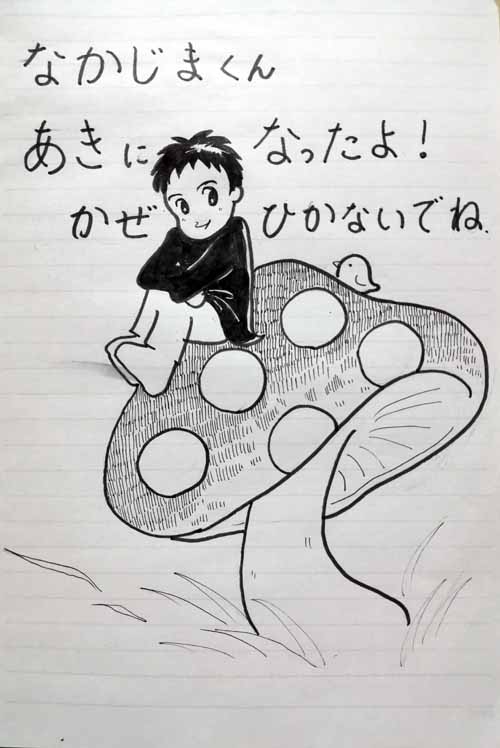 なかじまくん
あきに なったよ！
かぜ ひかないでね.